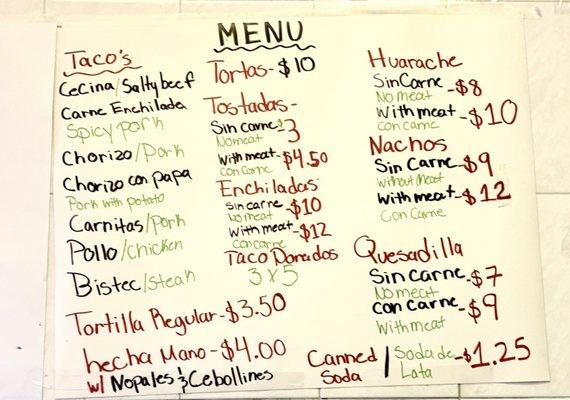 MENU
Taco's
Cecina/Salty beef
Carne Enchilada
Spicy pork
Chorizo/Pork
Chorizo con papa
Pork with potato
Carnitas/pork
Pollo/chicken
Bistec/steak
Tortilla Regular-$3.50
hecha Mano-$4.00
w/ Nopales & Cebollines
Tortas-$10
Tostadas-
Sin carne $3
No meat
With meat-$4.50
con carne
Enchiladas
Sin carne-$10
No meat
With meat-$12
con carne
Taco Dorados
3 x 5
Huarache
Sin Carne-$8
No meat
With meat-$10
con carne
Nachos
Sin Carne-$9
without meat
With meat-$12
Con Carne
Quesadilla
Sin Carne-$7
No meat
Con Carne-$9
With meat
Canned Soda / Soda de Lata-$1.25